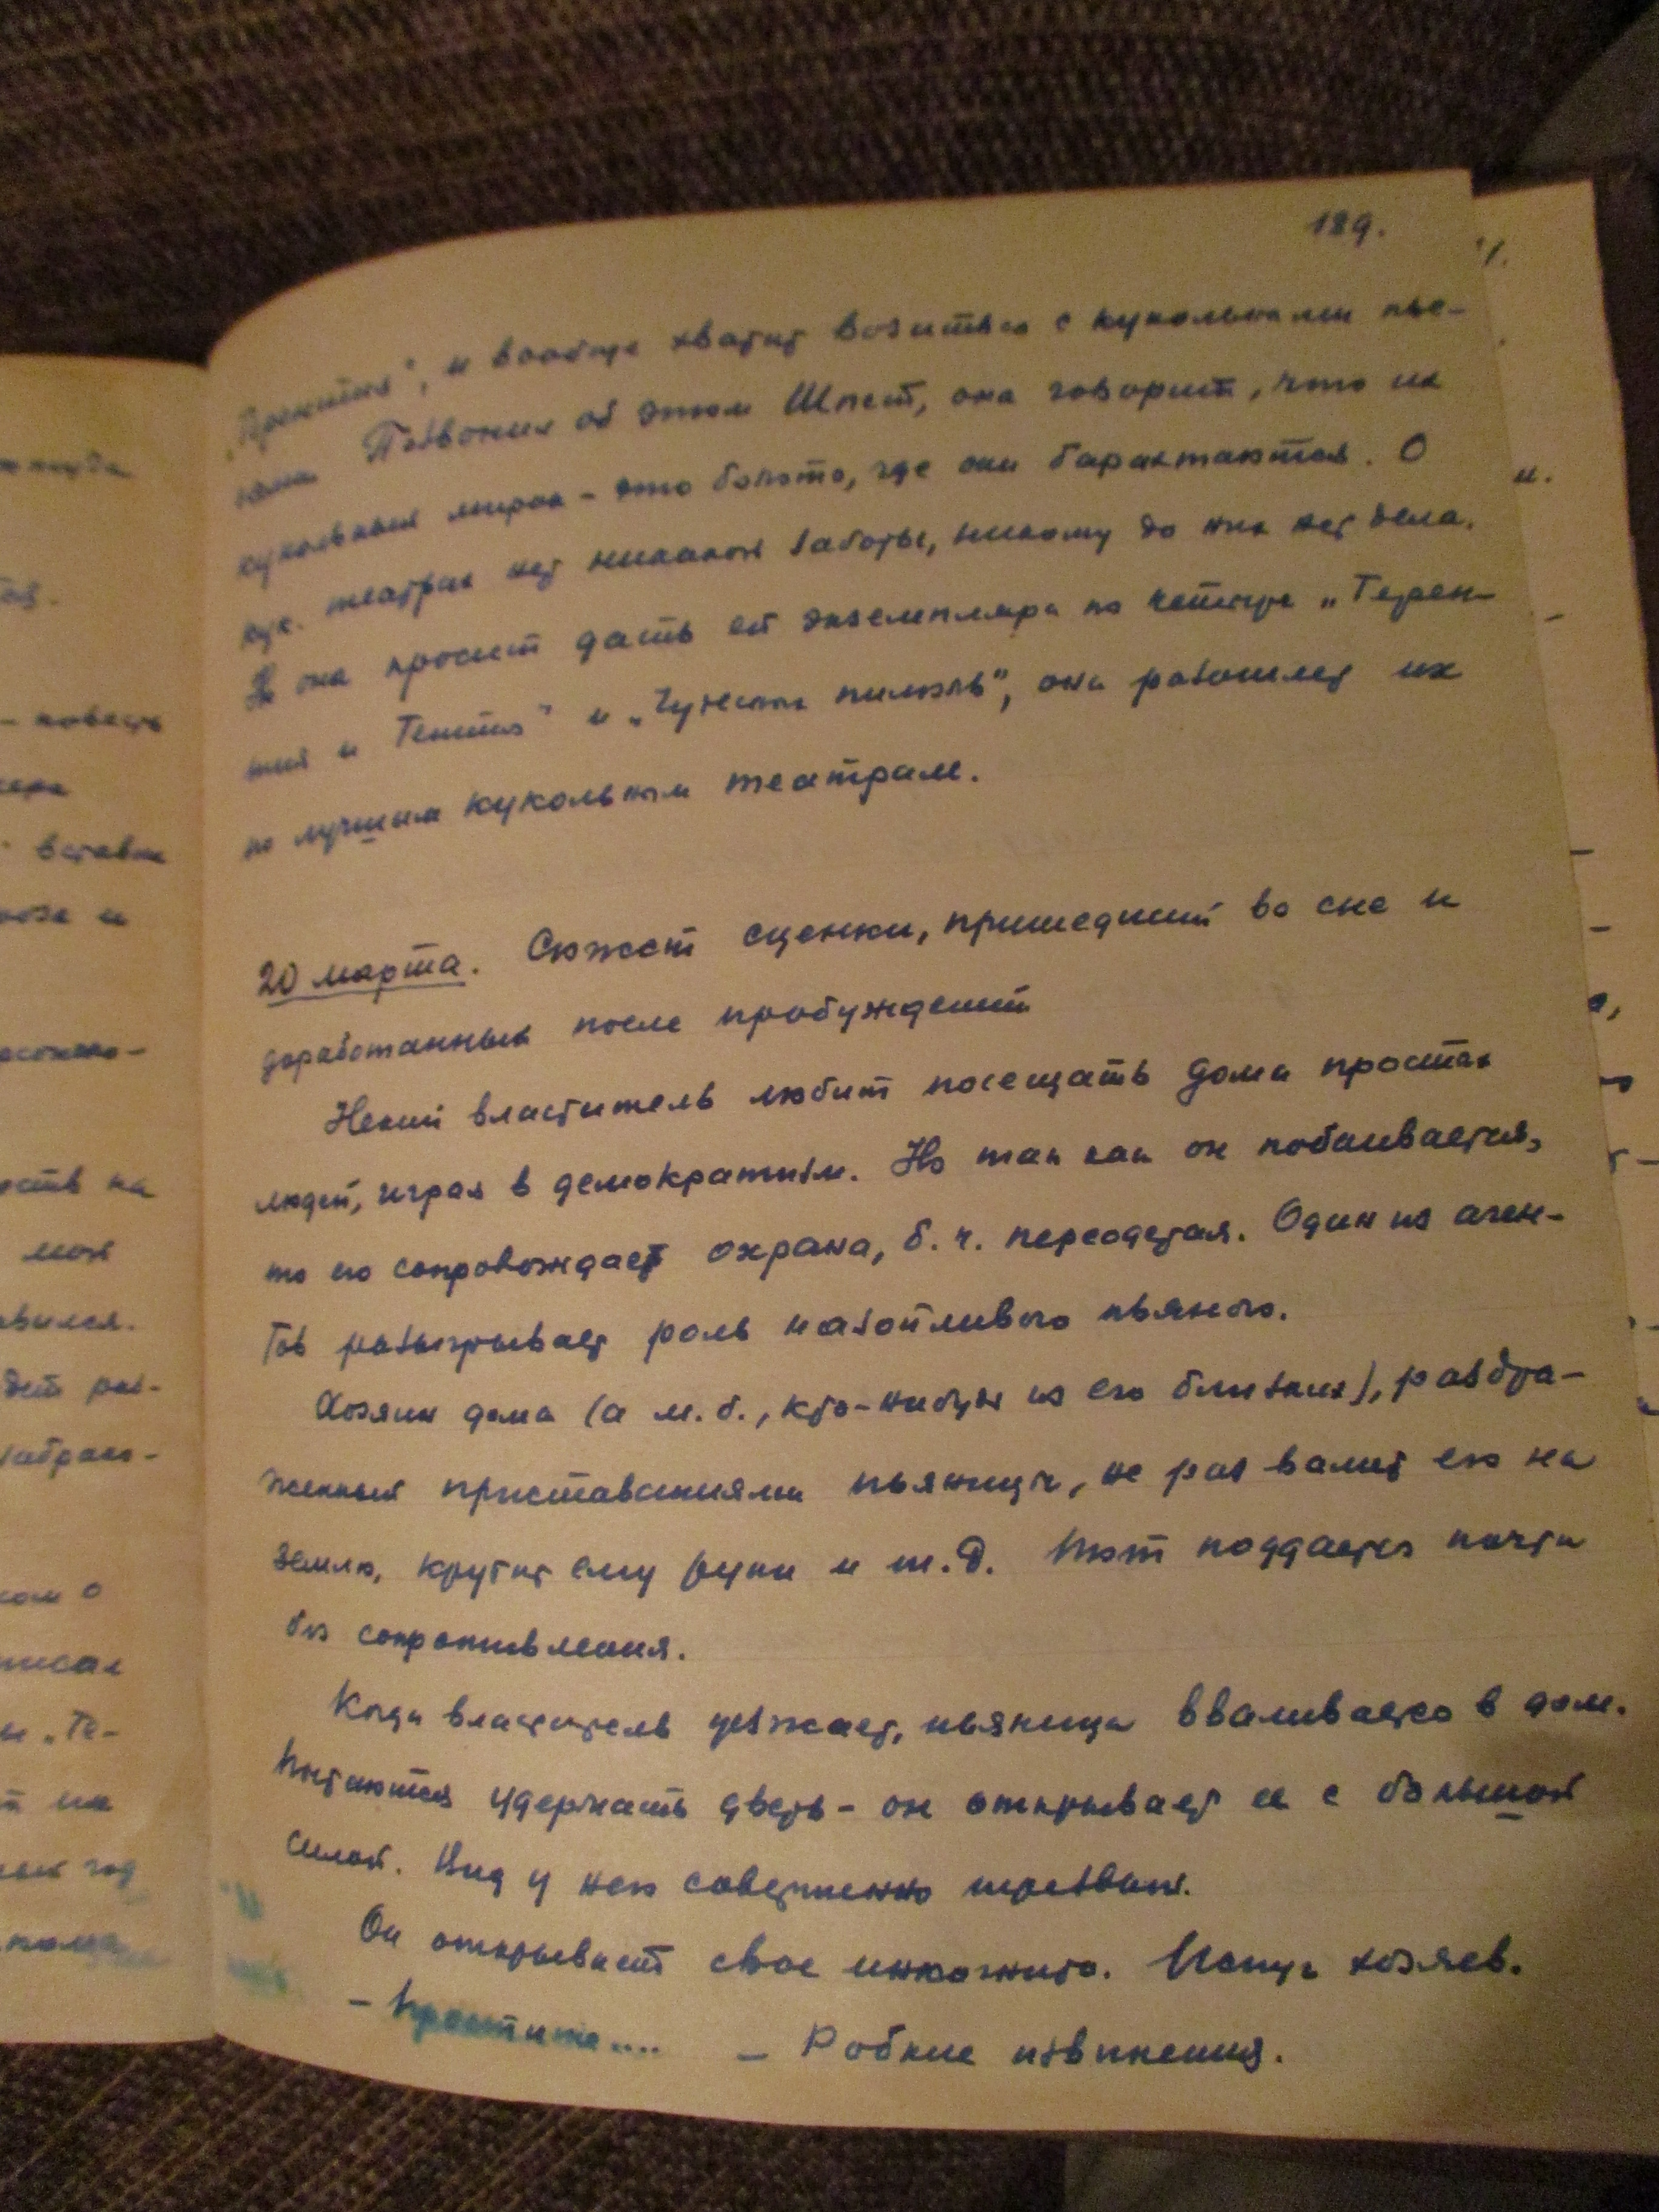 189.
", и вообще хватит возиться с кукольными пье-
сами. Позвонил об этом Шпет, она говорит, что их
кукольный мирок – это болото, где они барахтаются. О
кук. театрах нет никакой заботы, никому до них нет дела.
Но она просит дать ей экземпляра по четыре „Терен-
тия и Тентия" и „Чудесный пилюль", она разошлет их
по лучшим кукольным театрам.
20 марта. Сюжет сценки, пришедший во сне и
доработанный после пробуждений
Некий властитель любит посещать дома простых
людей, играя в демократизм. Но так как он побаивается,
то его сопровождает охрана, б. ч. переодетая. Один из аген-
тов разыгрывает роль назойливого пьяного.
Хозяин дома (а м. б., кто-нибудь из его близких), раздра-
женный приставаниями пьяницы, не раз валит его на
землю, крутит ему руки и т. д. Тот поддается почти
без сопротивления.
Когда властитель уезжает, пьяница вваливается в дом.
Пытаются удержать дверь – он открывает ее с большой
силой. Вид у него совершенно трезвый.
Он открывает свое инкогнито. Испуг хозяев.
– Простите.... – Робкие извинения.